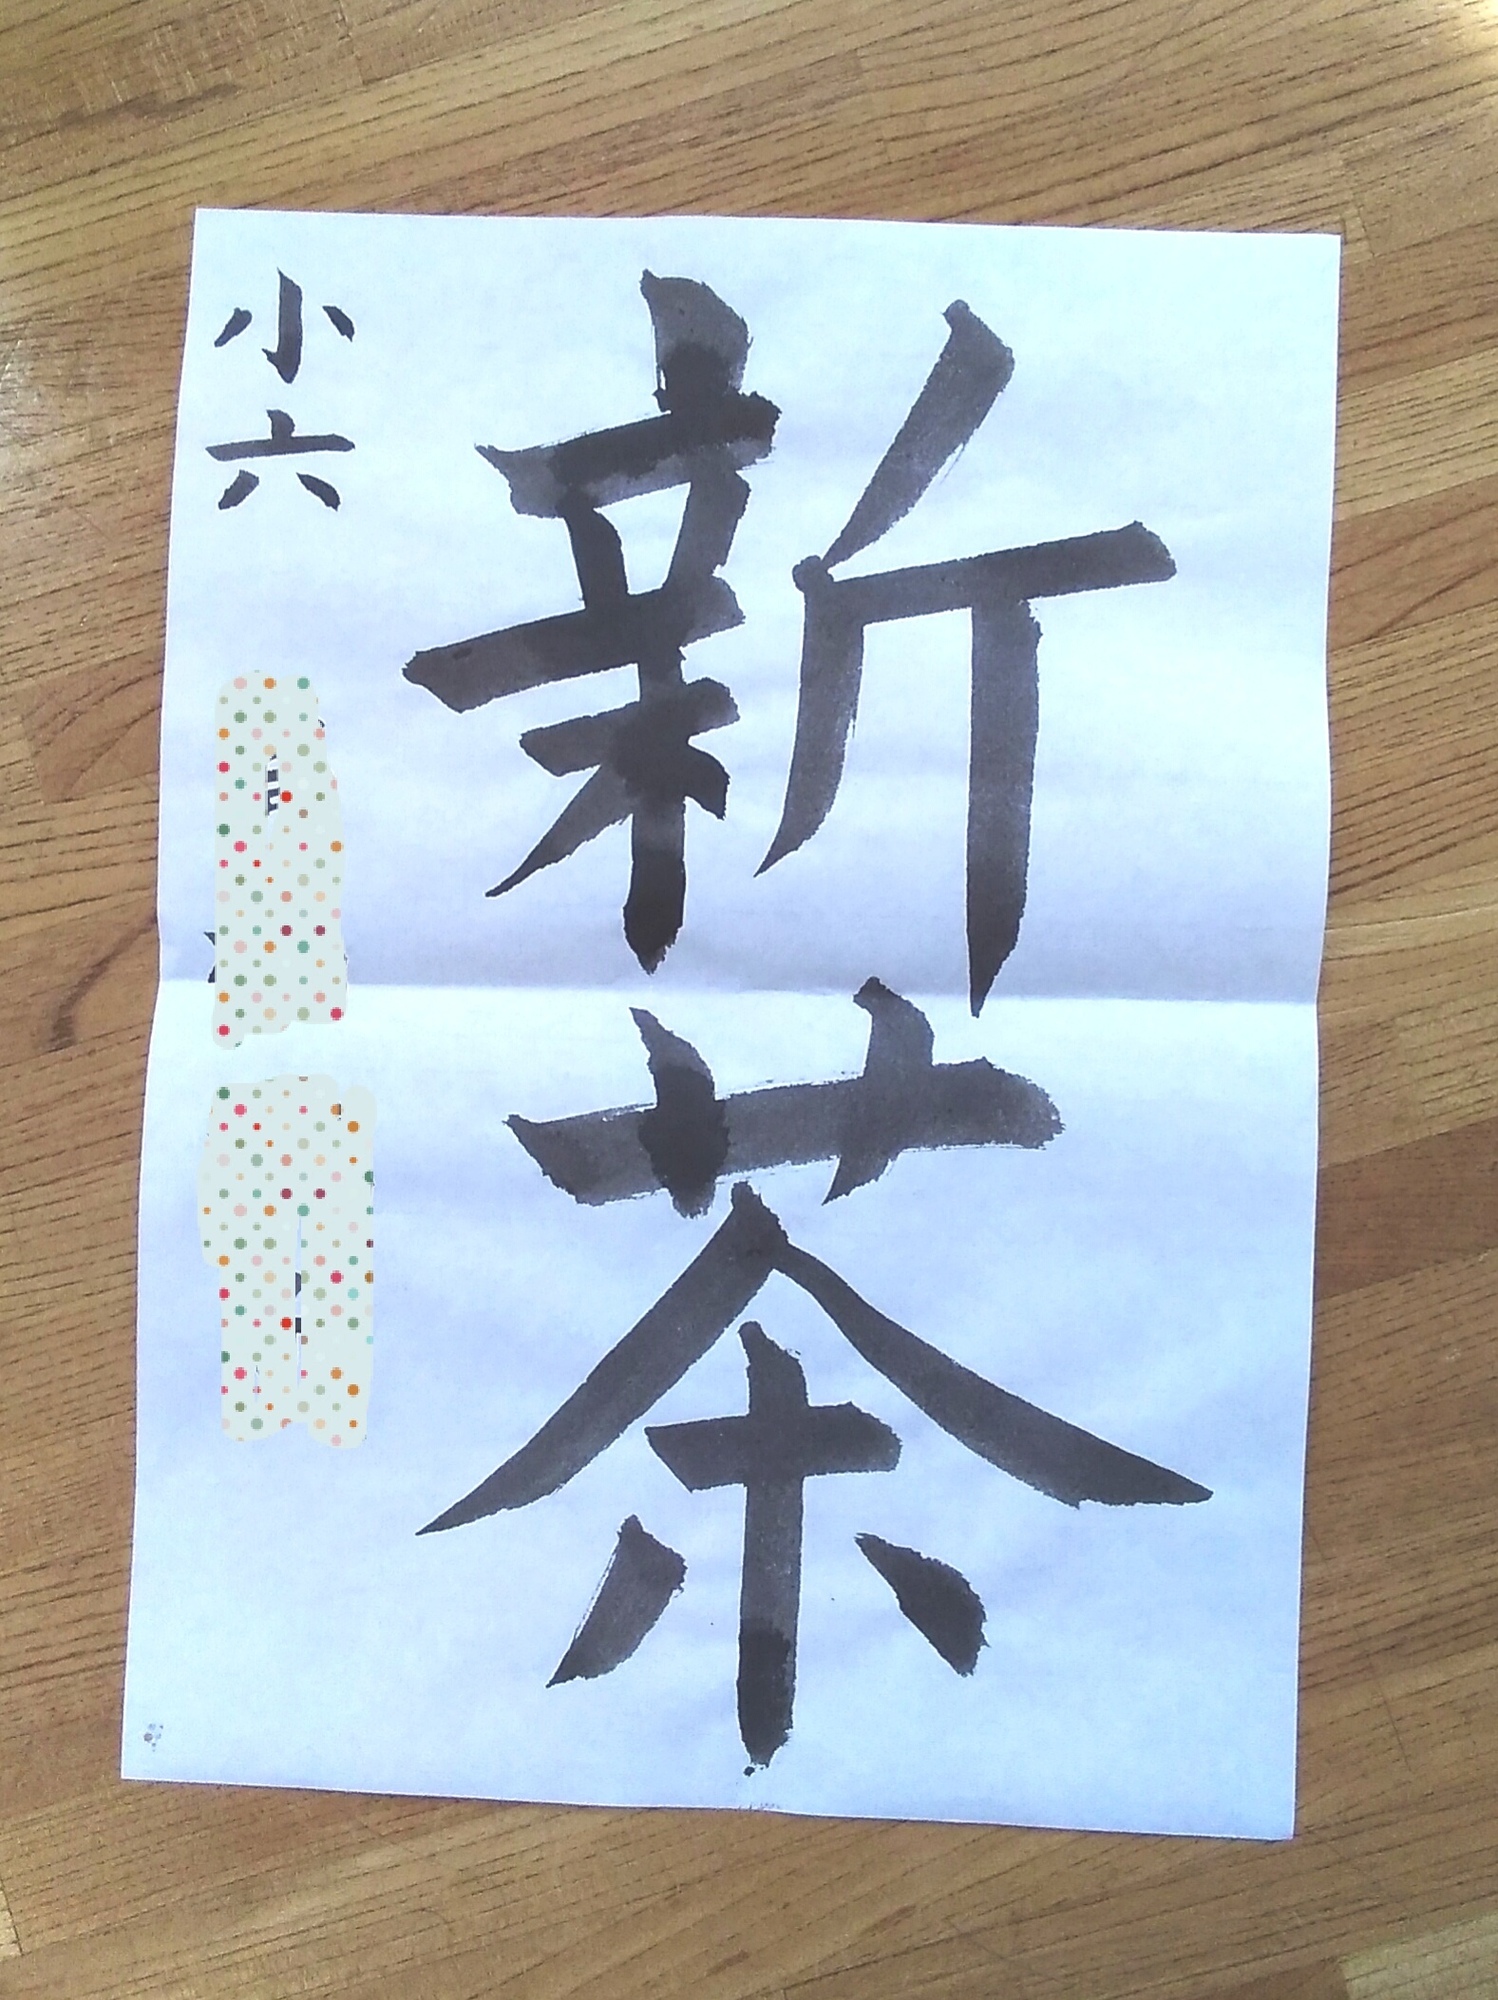 新茶
小六